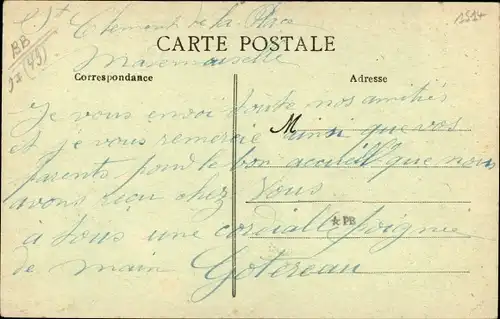 St Clement de la Place
1514
BB
37 (49)
Mademoiselle
CARTE POSTALE
Correspondance
Adresse
Je vous envoi toute nos amitiés
M
et je vous remercie ainsi que vos
parents pour le bon accueil que nous
avons reçu chez vous
PB
a tous une cordialle poignée
de main Gotereau